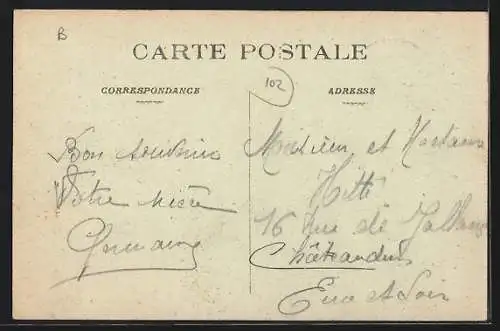 B
CARTE POSTALE
102
CORRESPONDANCE
ADRESSE
Bon souvenir
Votre nièce
Germaine
Monsieur et Madame
Hitte
16 rue de
Châteaudun
Eure et Loir